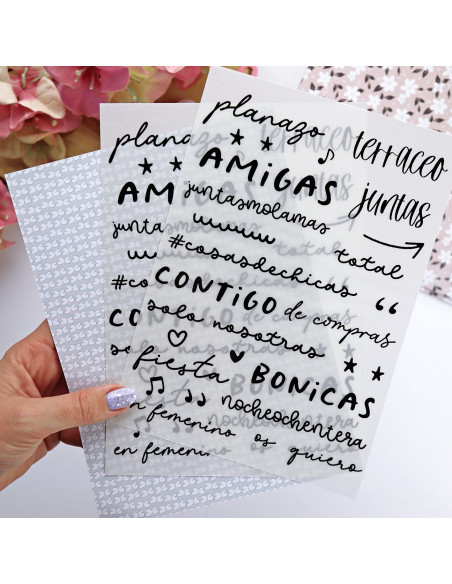 planazo
terraceo
AMIGAS
juntas
juntasmolamas
total
#cosasdechicas
CONTIGO de compras
solo nosotras
fiesta
BONICAS
nocheochentera
en femenino
os quiero
planazo
AM
juntas
#co
CO
so
en femenino